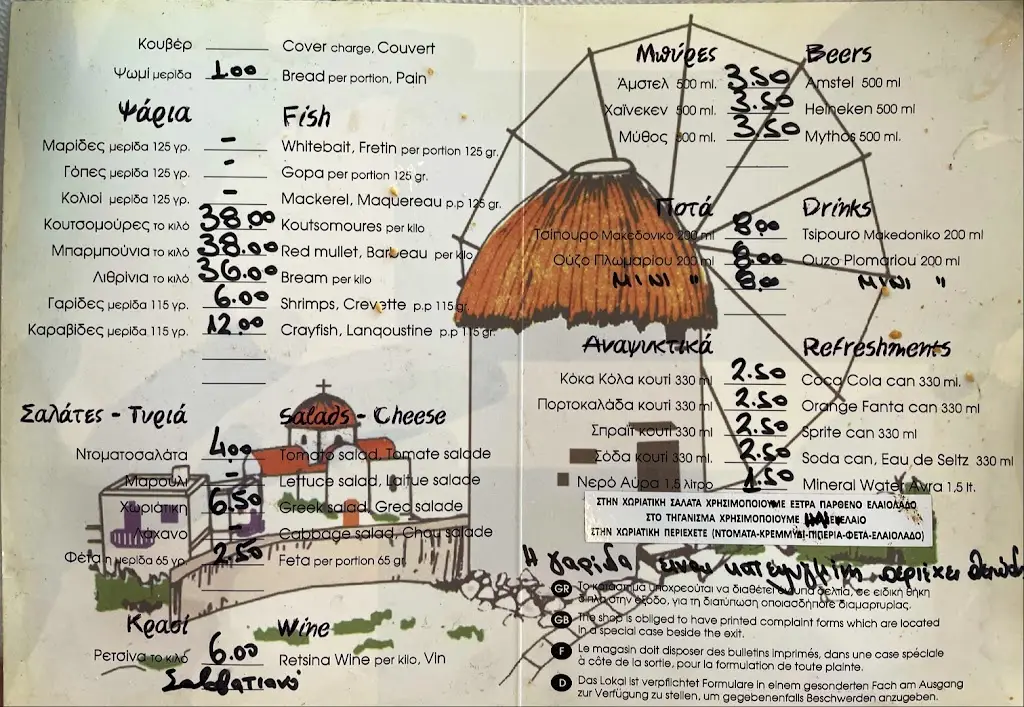 Κουβέρ Cover charge, Couvert
Ψωμί μερίδα 1.00 Bread per portion, Pain
Ψάρια Fish
Μαρίδες μερίδα 125 γρ. - Whitebait, Fretin per portion 125 gr.
Γόπες μερίδα 125 γρ. - Gopa per portion 125 gr.
Κολιοί μερίδα 125 γρ. - Mackerel, Maquereau p.p 125 gr.
Κουτσομούρες το κιλό 38.00 Koutsomoures per kilo
Μπαρμπούνια το κιλό 38.00 Red mullet, Barbeau per kilo
Λιθρίνια το κιλό 36.00 Bream per kilo
Γαρίδες μερίδα 115 γρ. 6.00 Shrimps, Crevette p.p 115 gr.
Καραβίδες μερίδα 115 γρ. 12.00 Crayfish, Langoustine p.p 115 gr.
Σαλάτες - Τυριά Salads - Cheese
Ντοματοσαλάτα 4.00 Tomato salad, Tomate salade
Μαρούλι - Lettuce salad, Laitue salade
Χωριάτικη 6.50 Greek salad, Greq salade
Λάχανο - Cabbage salad, Chou salade
Φέτα η μερίδα 65 γρ. 2.50 Feta per portion 65 gr.
Κρασί Wine
Ρετσίνα το κιλό 6.00 Retsina Wine per kilo, Vin
Σαββατιανό
Μπύρες Beers
Άμστελ 500 ml. 3.50 Amstel 500 ml
Χαΐνεκεν 500 ml. 3.50 Heineken 500 ml
Μύθος 500 ml. 3.50 Mythos 500 ml.
Ποτά Drinks
Τσίπουρο Μακεδονικό 200 ml 8.00 Tsipouro Makedoniko 200 ml
Ούζο Πλωμαρίου 200 ml 8.00 Ouzo Plomariou 200 ml
ΜΙΝΙ " 6.00 ΜΙΝΙ "
Αναψυκτικά Refreshments
Κόκα Κόλα κουτί 330 ml 2.50 Coca Cola can 330 ml.
Πορτοκαλάδα κουτί 330 ml 2.50 Orange Fanta can 330 ml
Σπράιτ κουτί 330 ml 2.50 Sprite can 330 ml
Σόδα κουτί 330 ml. 2.50 Soda can, Eau de Seltz 330 ml
Νερό Αύρα 1.5 λίτρο 1.50 Mineral Water Avra 1,5 lt.
ΣΤΗΝ ΧΩΡΙΑΤΙΚΗ ΣΑΛΑΤΑ ΧΡΗΣΙΜΟΠΟΙΟΥΜΕ ΕΞΤΡΑ ΠΑΡΘΕΝΟ ΕΛΑΙΟΛΑΔΟ
ΣΤΟ ΤΗΓΑΝΙΣΜΑ ΧΡΗΣΙΜΟΠΟΙΟΥΜΕ
ΣΤΗΝ ΧΩΡΙΑΤΙΚΗ ΠΕΡΙΕΧΕΤΕ (ΝΤΟΜΑΤΑ-ΚΡΕΜΜΥΔΙ-ΠΙΠΕΡΙΑ-ΦΕΤΑ-ΕΛΑΙΟΛΑΔΟ)
Η γαρίδα είναι κατεψυγμένη περιέχει
GR Το κατάστημα υποχρεούται να διαθέτει έντυπα δελτία, σε ειδική θήκη
δίπλα στην έξοδο, για τη διατύπωση οποιασδήποτε διαμαρτυρίας.
GB The shop is obliged to have printed complaint forms which are located
in a special case beside the exit.
F Le magasin doit disposer des bulletins imprimés, dans une case spéciale
à côte de la sortie, pour la formulation de toute plainte.
D Das Lokal ist verpflichtet Formulare in einem gesonderten Fach am Ausgang
zur Verfügung zu stellen, um gegebenenfalls Beschwerden anzugeben.